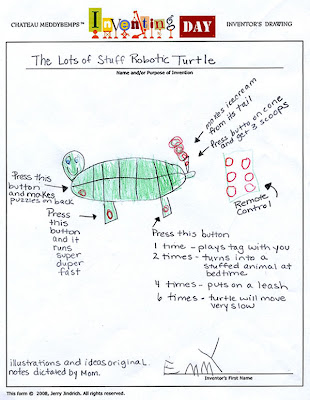 CHATEAU MEDDYBEMPS™ Inventing DAY INVENTOR'S DRAWING
The Lots of Stuff Robotic Turtle
Name and/or Purpose of Invention
makes icecream
from its tail
Press button on cone
and get 3 scoops
Press this
button
and makes
puzzles on back
Press
this
button
and it
runs
super
duper
fast
Remote
Control
Press this button
1 time - plays tag with you
2 times - turns into a
stuffed animal at
bedtime
4 times - puts on a leash
6 times - turtle will move
very slow
illustrations and ideas original
notes dictated by Mom.
Emmy
Inventor's First Name
This form © 2008, Jerry Jindrich. All rights reserved.